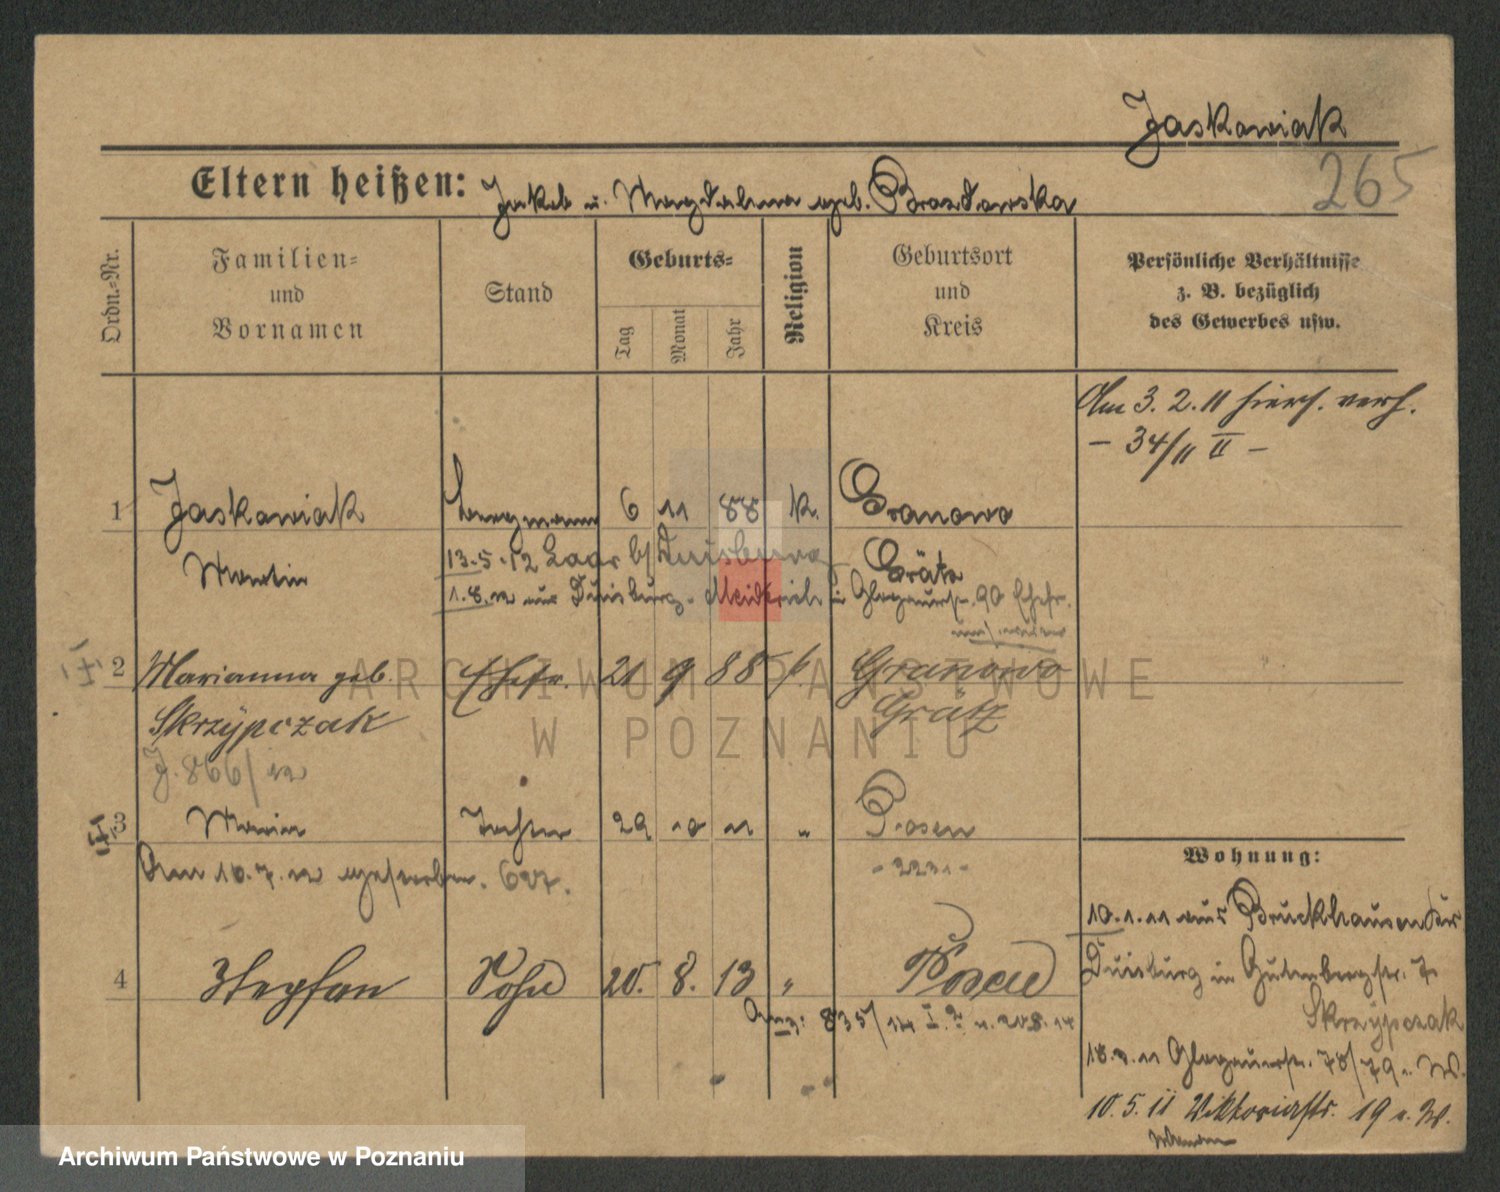 Jaskowiak
265
Eltern heißen: Jakob u. Magdalena geb. Brostowska
Ordn.-Nr.
Familien-
und
Vornamen
Stand
Geburts-
Tag
Monat
Jahr
Religion
Geburtsort
und
Kreis
Persönliche Verhältnisse
z. B. bezüglich
des Gewerbes usw.
Am 3. 2. 11 hiers. verh.
- 34/11 II -
1 Jaskowiak Bergmann 6 11 88 k. Granowo
Martin
Grätz
13.5.12 Laar b/ Duisburg
1.8.12 aus Duisburg-Meiderich in Glogauerstr. 90 Ehefr.
2 Marianna geb. Ehefr. 21 9 88 k. Granowo
Skrzÿpczak Grätz
J. 866/12
3 Maria Tochter 29 10 11 " Posen
- 2231 -
Am 10.7.12 gestorben. 627.
4 Stephan Sohn 20. 8. 13 " Posen
Anz: 835/14 I.2
Wohnung:
10.1.11 aus Bruckhausen Kr
Duisburg in Gutenbergstr. 7.
Skrzÿpczak
18.2.11 Glogauerstr. 78/79 b. W.
10.5.11 Viktoriastr. 19 b. W.
ARCHIWUM PAŃSTWOWE
W POZNANIU
Archiwum Państwowe w Poznaniu